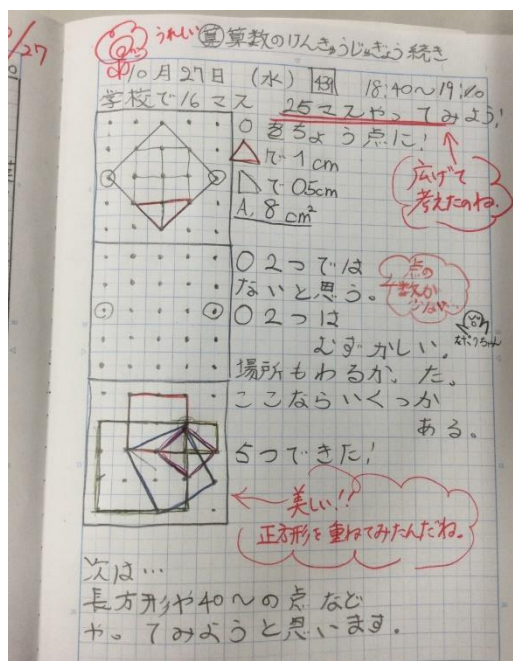 /27
うれしい 算 算数のけんきゅうじゅぎょう続き
10月27日(水) 431 18:40〜19:10
学校で16マス 25マスやってみよう!
○をちょう点に!
で1cm
で0.5cm
A, 8cm²
広げて
考えたのね。
○2つでは
ないと思う。
点の
数が
少ない…
○2つは
むずかしい。
場所もわるかった。
ここならいくつか
ある。
5つできた!
美しい!!
正方形を重ねてみたんだね。
次は…
長方形や40〜の点など
やってみようと思います。